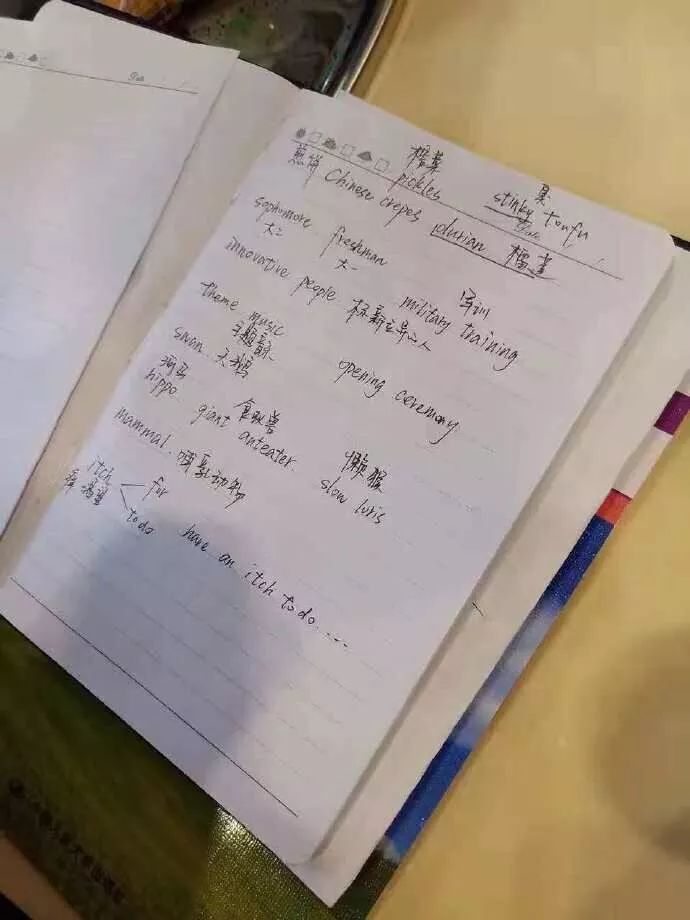 榨菜 臭
煎饼 Chinese crepes pickles stinky toufu
durian 榴莲
sophomore freshman military training 军训
大二 大一
innovative people 标新立异之人
theme music opening ceremony
主题音乐
swan 天鹅
河马 食蚁兽 懒猴
hippo giant anteater slow loris
mammal 哺乳动物
itch for
痒 渴望 to do have an itch to do ...